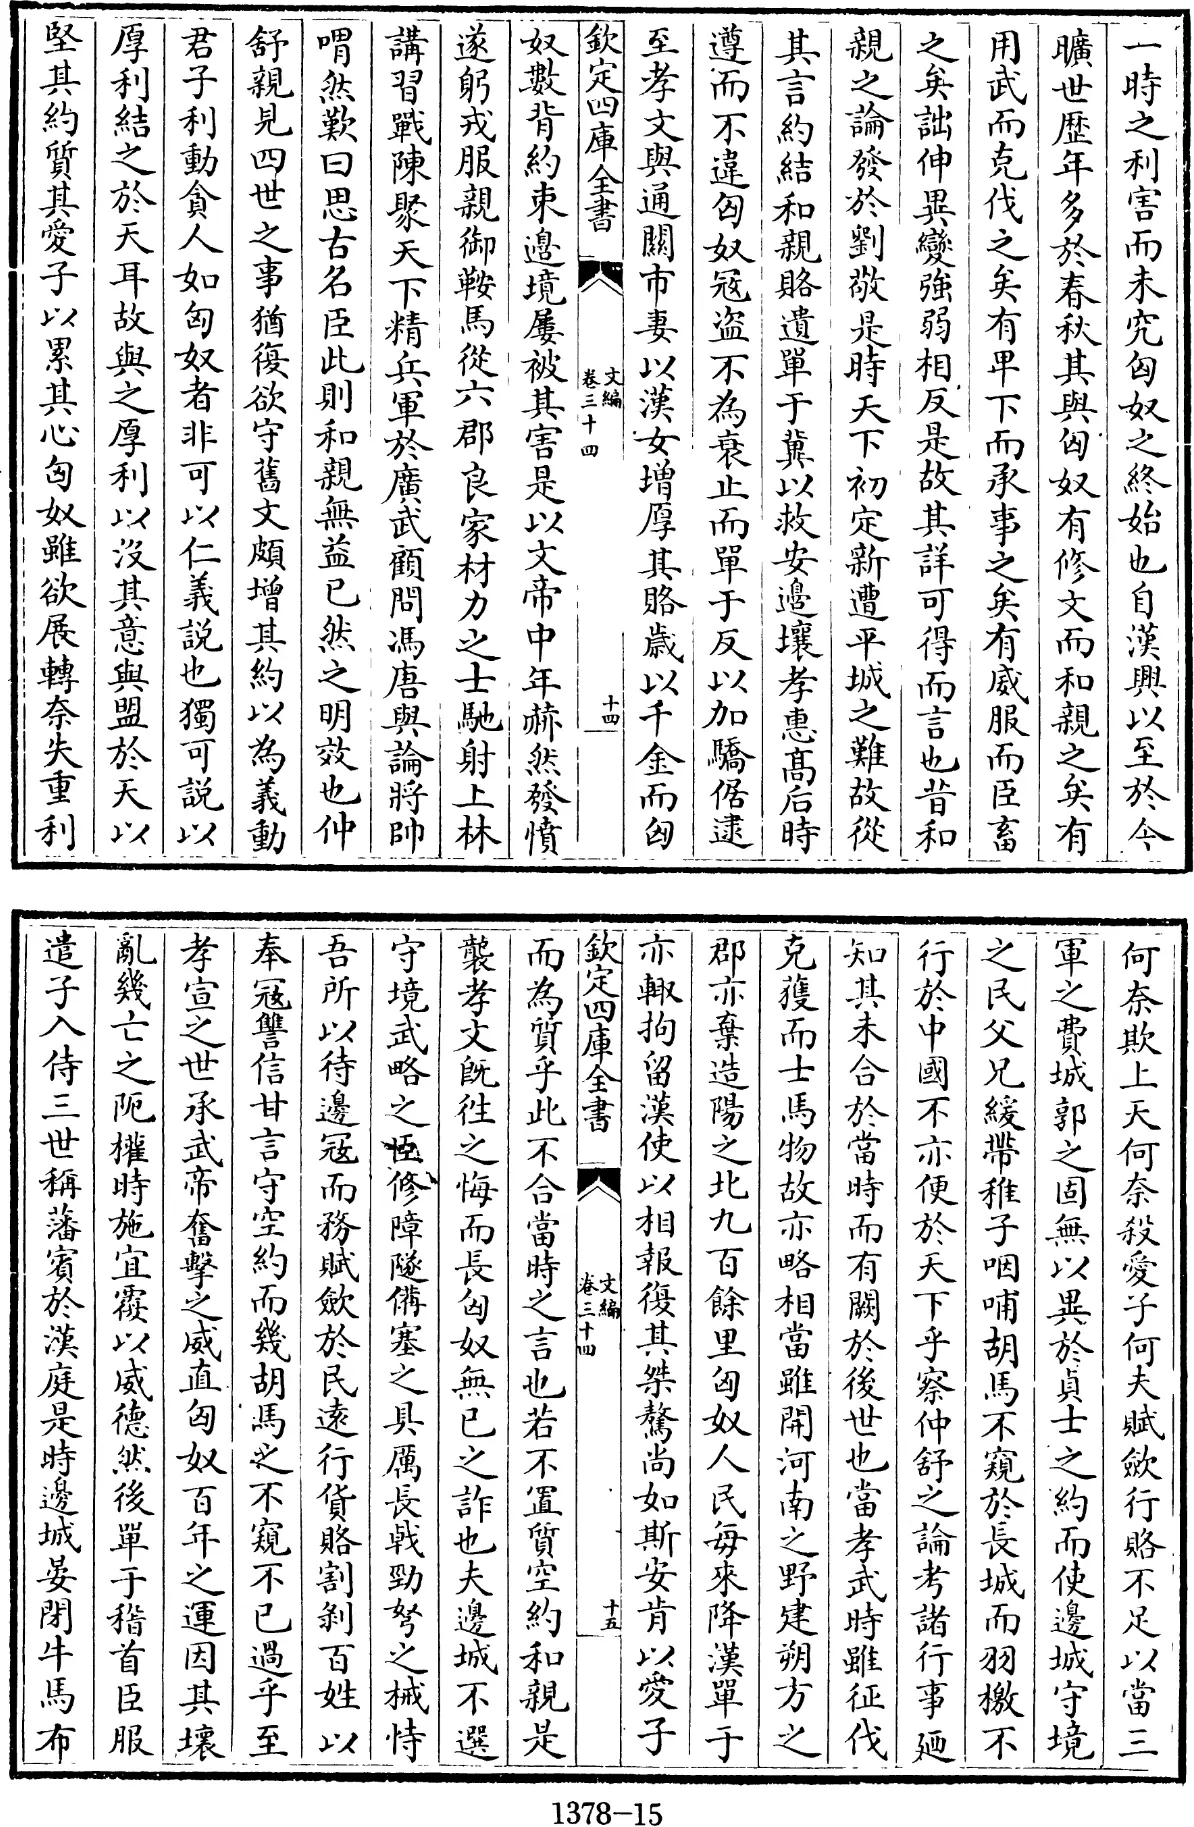 一時之利害而未究匈奴之終始也自漢興以至於今
曠世歴年多於春秋其與匈奴有修文而和親之矣有
用武而克伐之矣有卑下而承事之矣有威服而臣畜
之矣詘伸異變強弱相反是故其詳可得而言也昔和
親之論發於劉敬是時天下初定新遭平城之難故從
其言約結和親賂遺單于冀以救安邊壤孝惠髙后時
遵而不違匈奴冦盗不為衰止而單于反以加驕倨逮
至孝文與通關市妻以漢女増厚其賂歳以千金而匈
欽定四庫全書
文編
卷三十四
十四
奴數背約束邊境屢被其害是以文帝中年赫然發憤
遂躬戎服親御鞍馬從六郡良家材力之士馳射上林
講習戰陳聚天下精兵軍於廣武顧問馮唐與論將帥
喟然歎曰思古名臣此則和親無益已然之明效也仲
舒親見四世之事猶復欲守舊文頗增其約以為義動
君子利動貪人如匈奴者非可以仁義説也獨可説以
厚利結之於天耳故與之厚利以沒其意與盟於天以
堅其約質其愛子以累其心匈奴雖欲展轉奈失重利
何奈欺上天何奈殺愛子何夫賦歛行賂不足以當三
軍之費城郭之固無以異於貞士之約而使邊城守境
之民父兄緩帶稚子咽哺胡馬不窺於長城而羽檄不
行於中國不亦便於天下乎察仲舒之論考諸行事廼
知其未合於當時而有闕於後世也當孝武時雖征伐
克獲而士馬物故亦略相當雖開河南之野建朔方之
郡亦棄造陽之北九百餘里匈奴人民每來降漢單于
亦輙拘留漢使以相報復其桀驁尚如斯安肯以愛子
欽定四庫全書
文編
卷三十四
十五
而為質乎此不合當時之言也若不置質空約和親是
襲孝文既徃之悔而長匈奴無已之詐也夫邊城不選
守境武略之臣修障隧備塞之具厲長戟勁弩之械恃
吾所以待邊冦而務賦歛於民逺行貨賂割剝百姓以
奉冦讐信甘言守空約而幾胡馬之不窺不已過乎至
孝宣之世承武帝奮擊之威直匈奴百年之運因其壞
亂幾亡之阨權時施宜覆以威德然後單于稽首臣服
遣子入侍三世稱藩賓於漢庭是時邊城晏閉牛馬布
1378-15